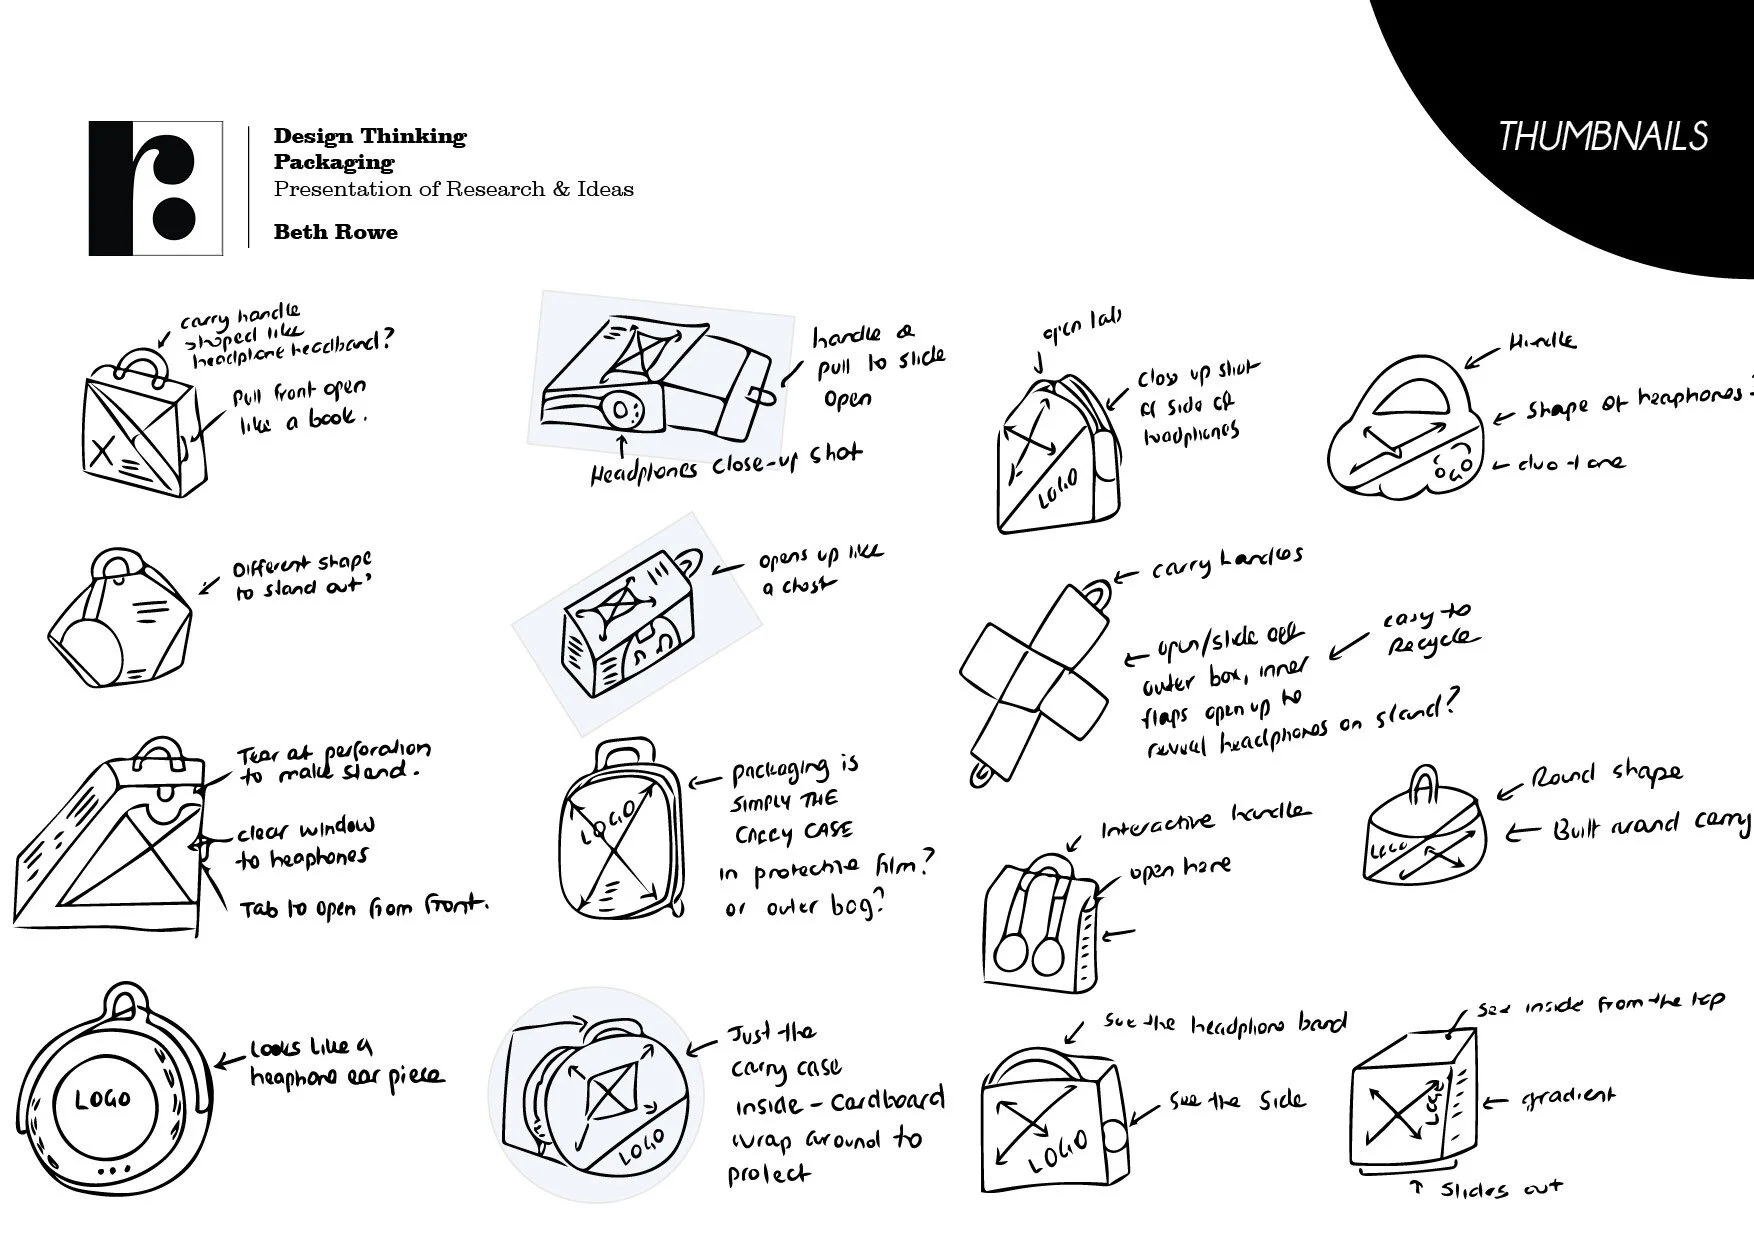 THUMBNAILS
Design Thinking
Packaging
Presentation of Research & Ideas
Beth Rowe
carry handle
shaped like
headphone headband?
pull front open
like a book.
X
handle a
pull to slide
open
Headphones close-up shot
open tab
close up shot
of side of
headphones
LOGO
Handle
shape of headphones?
duo-tone
LOGO
Different shape
to stand out?
opens up like
a chest
carry handles
open/slide off
outer box, inner
flaps open up to
reveal headphones on stand?
easy to
Recycle
Tear at perforation
to make stand.
clear window
to heaphones
Tab to open from front.
LOGO
packaging is
SIMPLY THE
CARRY CASE
in protective film?
or outer bag?
Interactive handle
open here
Round shape
Built around carry
LOGO
LOGO
Looks like a
heaphone ear piece
LOGO
Just the
carry case
inside - cardboard
wrap around to
protect
see the headphone band
see the side
LOGO
see inside from the top
gradient
LOGO
slides out